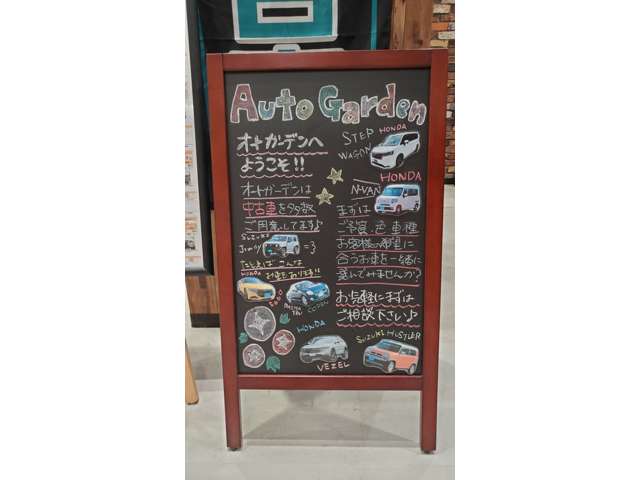 Auto Garden
オートガーデンへ
ようこそ!!
オートガーデンは
中古車を多数
ご用意してます♪
SUZUKI
Jimny
=3
たとえば こんな
お車もあります!!
HONDA
DAIHATSU
COPEN
HONDA
VEZEL
STEP HONDA
WAGON
HONDA
N-VAN
まずは
ご予算、色、車種
お客様の希望に
合うお車を一緒に
選んでみませんか?
お気軽にまずは
ご相談下さい♪
SUZUKI HUSTLER